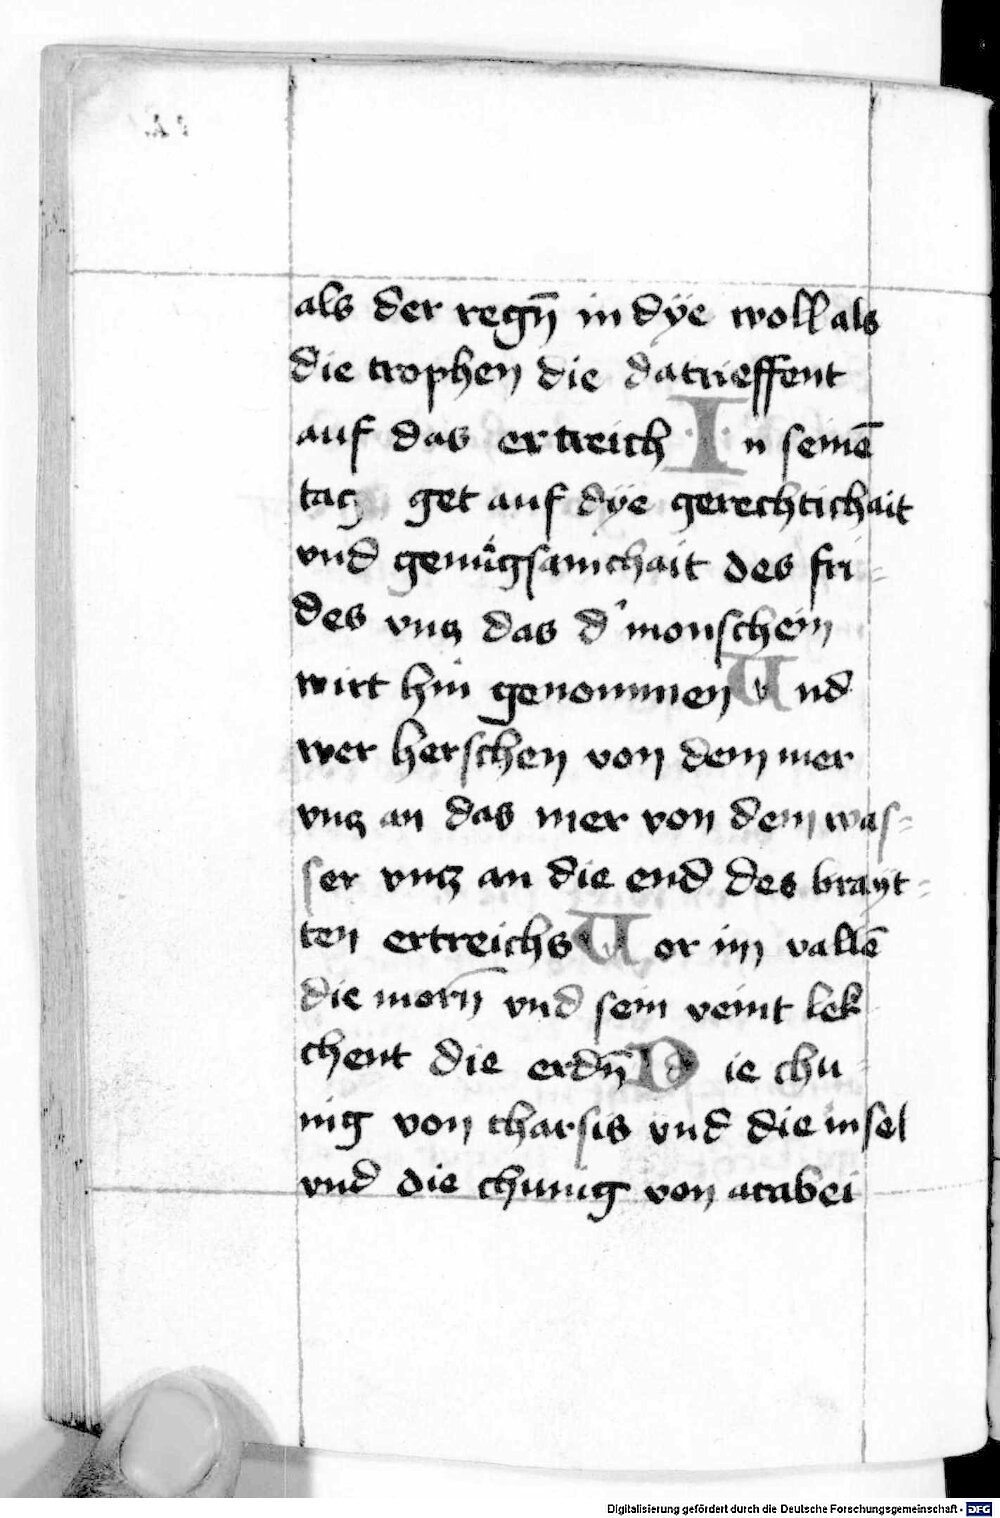 als der regn̄ in dÿe woll als
die trophen die da trieffent
auf das ertreich In seinē
tag get auf dÿe gerechtichait
vnd genůgsamchait des fri-
des vntz das d' monschein
wirt hin genommen Vnd
wer herschen von dem mer
vntz an das mer von dem was-
ser vntz an die end des brayt-
ten ertreichs Vor im vallē
die morn̄ vnd sein veint lek
chent die erdn̄ Die chu-
nig von tharsis vnd die insel
vnd die chunig von arabei
Digitalisierung gefördert durch die Deutsche Forschungsgemeinschaft - DFG